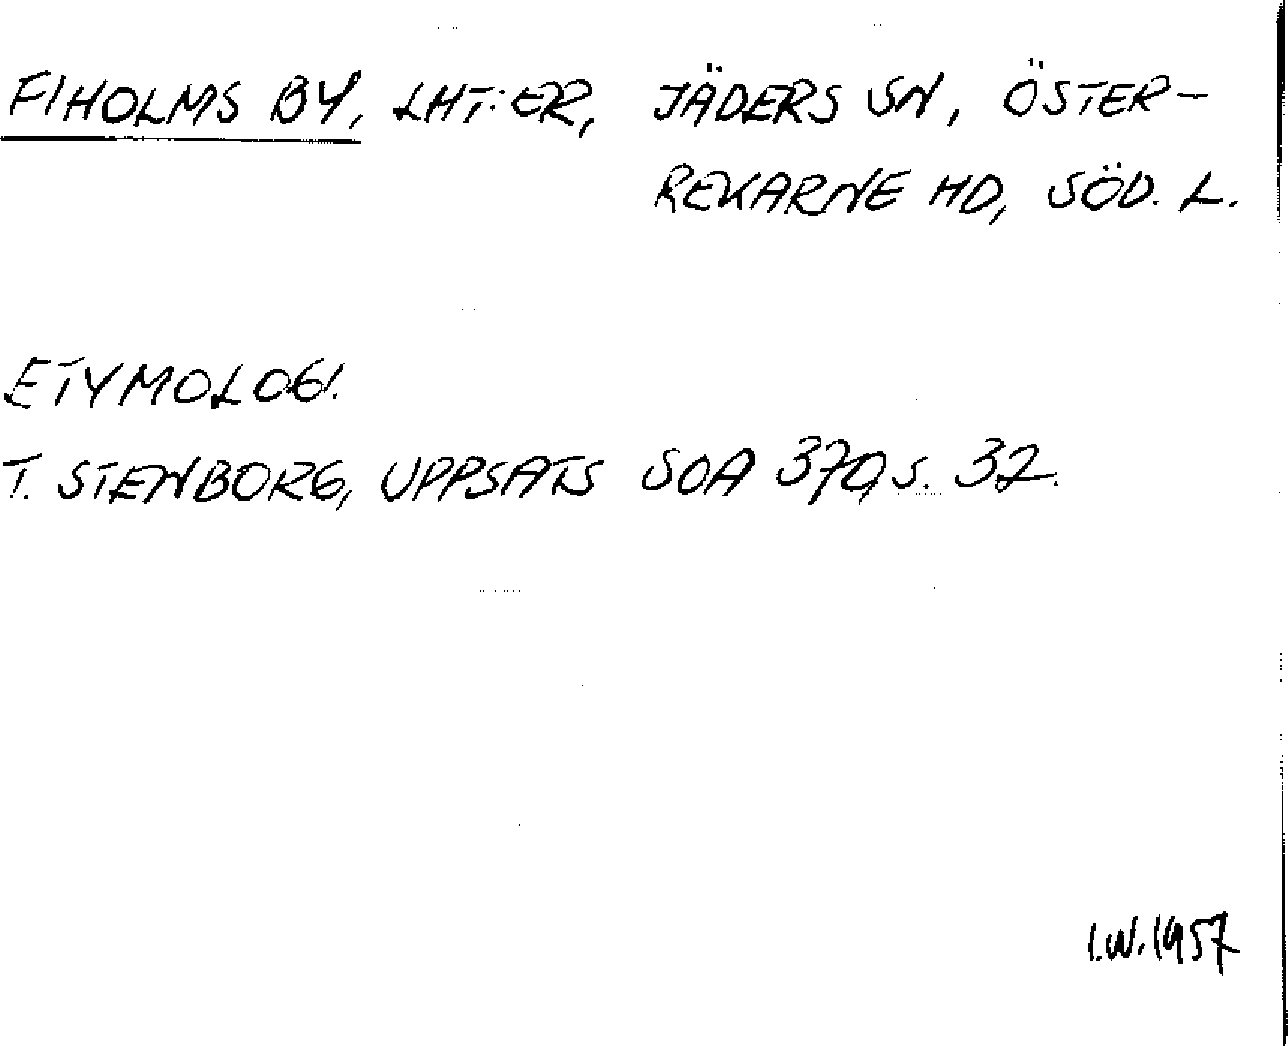 FIHOLMS BY, LHT:ER, JÄDERS SN, ÖSTER-
REKARNE HD, SÖD. L.
ETYMOLOGI.
T. STENBORG, UPPSATS SOA 370, S. 32.
I.W.1957